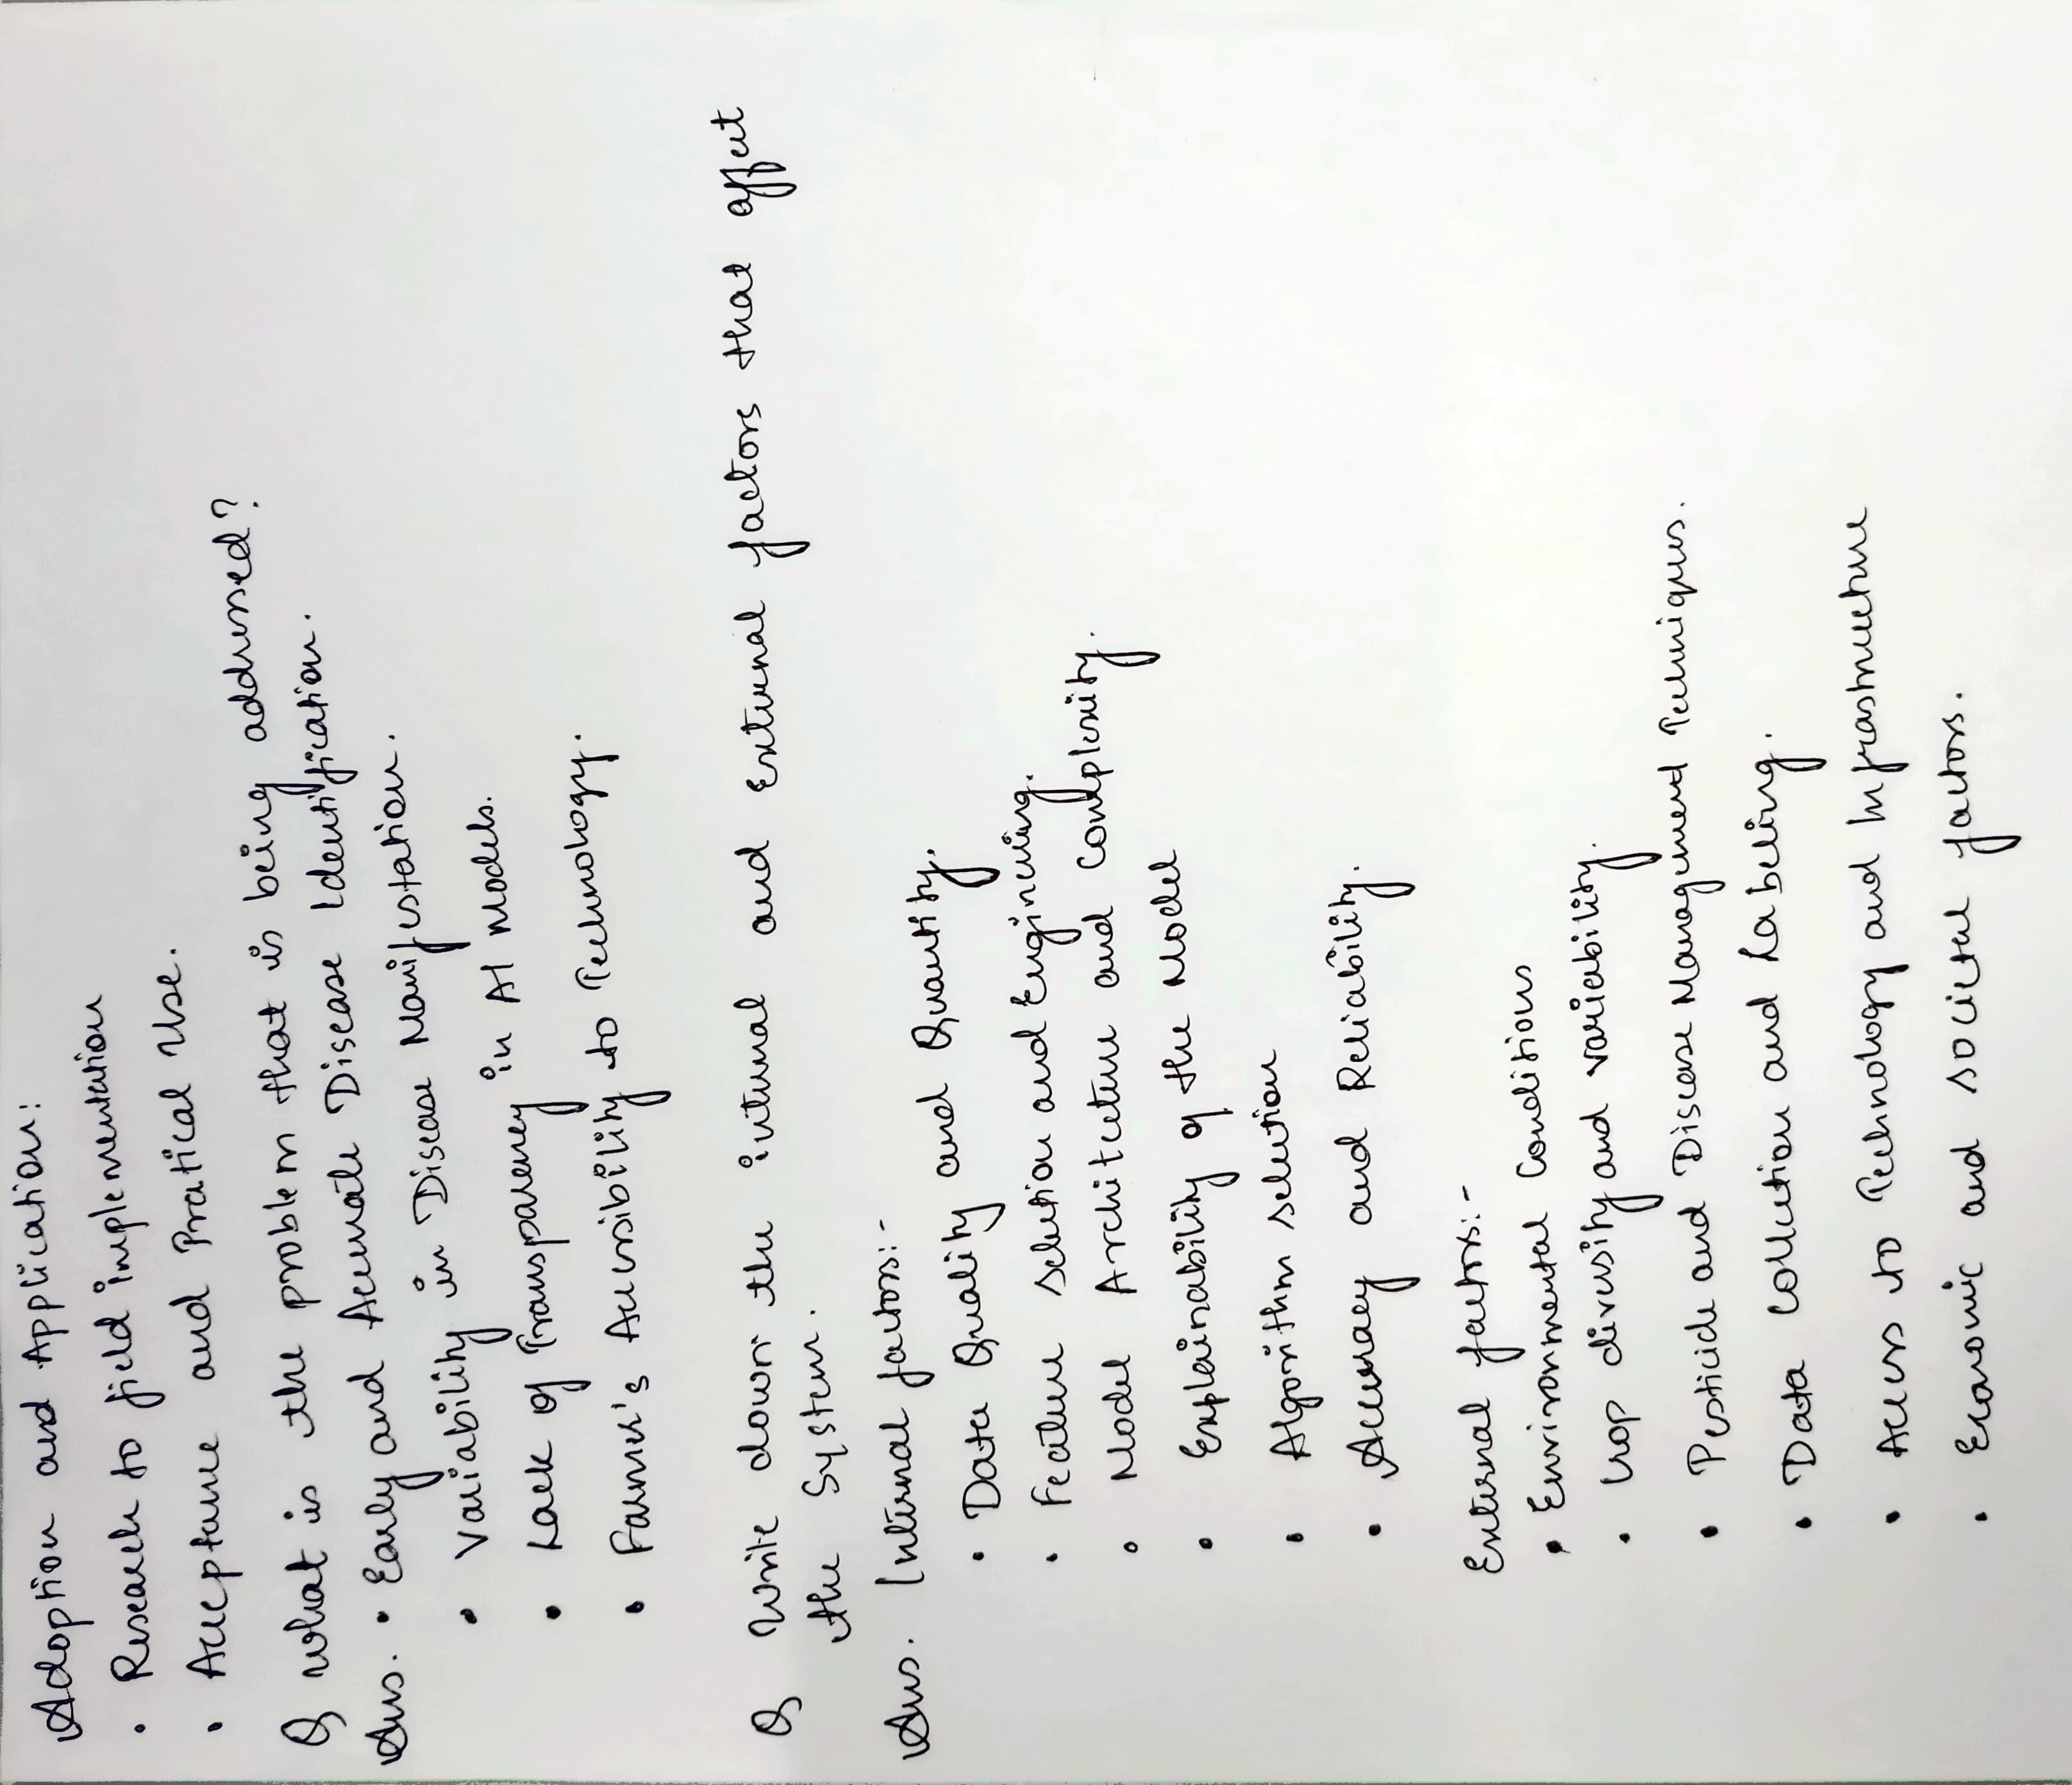 Adoption and Application:
• Research to field implementation
• Acceptance and Pratical Use.
Q What is the problem that is being addressed?
Ans. • Early and Accurate Disease Identification.
• Variability in Disease Manifestation.
• Lack of Transparency in AI Models.
• Farmer's Accessibility to Technology.
Q Write down the internal and External factors that affect
the System.
Ans. Internal factors:-
• Data Quality and Quantity.
• Feature selection and Engineering.
• Model Architecture and Complexity.
• Explainability of the Model
• Algorithm selection
• Accuracy and Reliability.
External factors:-
• Environmental Conditions
• Crop diversity and variability.
• Pesticide and Disease Management Techniques.
• Data Collection and Labeling.
• Access to Technology and Infrastructure
• Economic and societal factors.